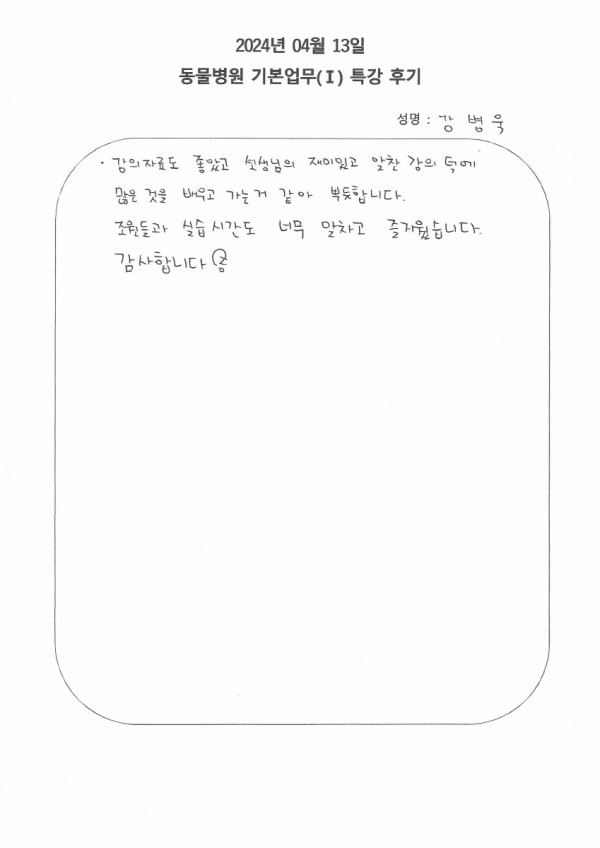 2024년 04월 13일
동물병원 기본업무(I) 특강 후기
성명 : 강 병 욱
· 강의자료도 좋았고 선생님의 재미있고 알찬 강의 덕에
많은 것을 배우고 가는거 같아 뿌듯합니다.
조원들과 실습시간도 너무 알차고 즐거웠습니다.
감사합니다